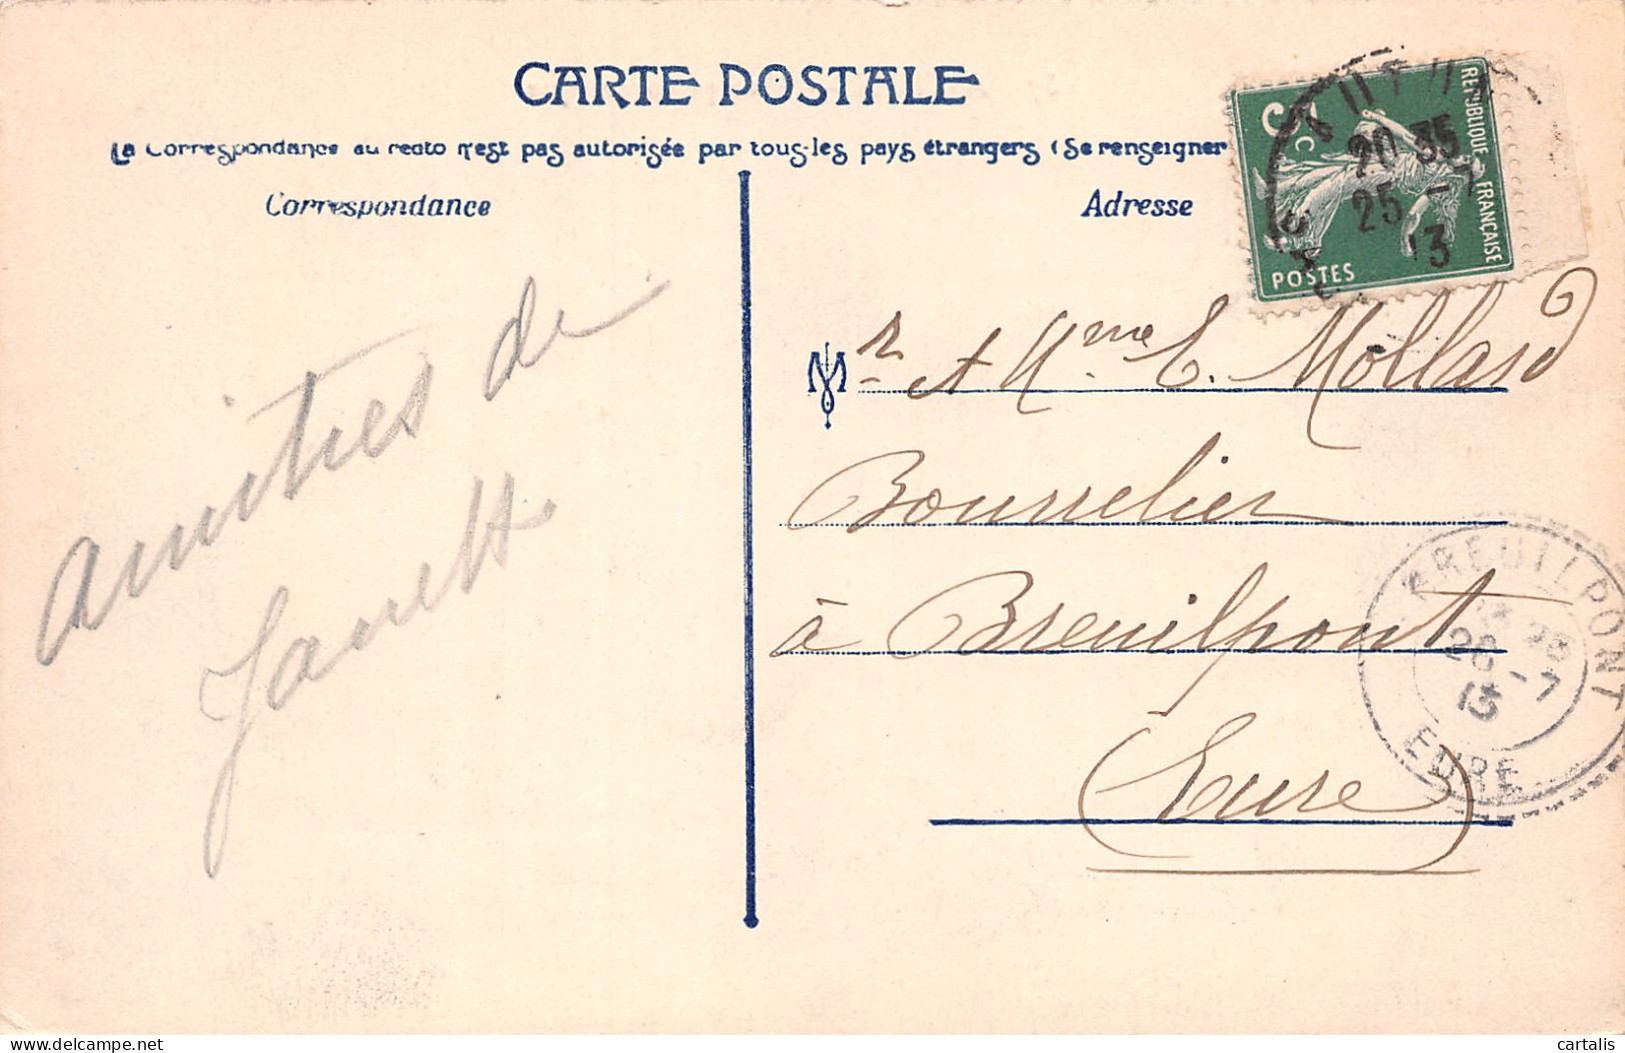 CARTE POSTALE
La Correspondance au recto n'est pas autorisée par tous les pays étrangers (Se renseigner
Correspondance
Adresse
5 c
REPUBLIQUE FRANÇAISE
POSTES
20 35
25 -7
13
amitiés de
Mr et Mme E. Mollard
Bourrelier
à Breuilpont
(Eure)
BREUILPONT
26 -7
13
EURE
delcampe.net
cartalis